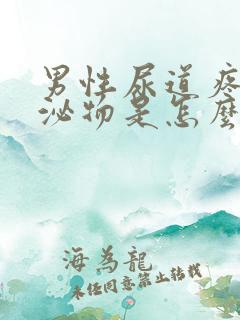 男性尿道疼
泌物是怎麼
海為龍
未經同意禁止轉載